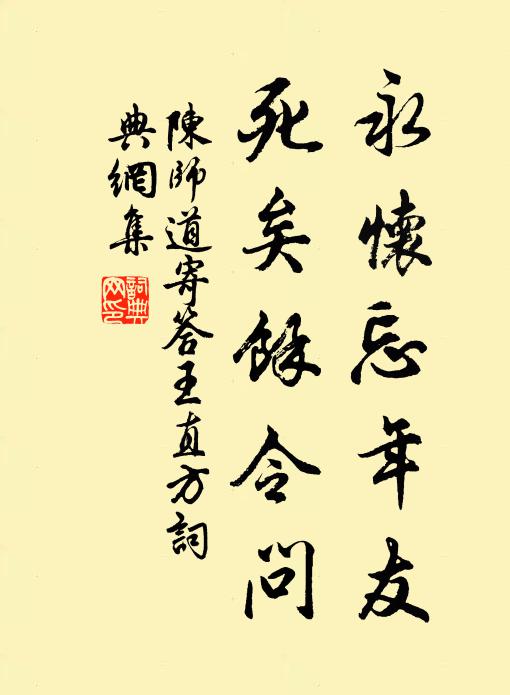 永懷忘年友
死矣餘令問
陳師道寄答王直方詞
典網集
詞典网印